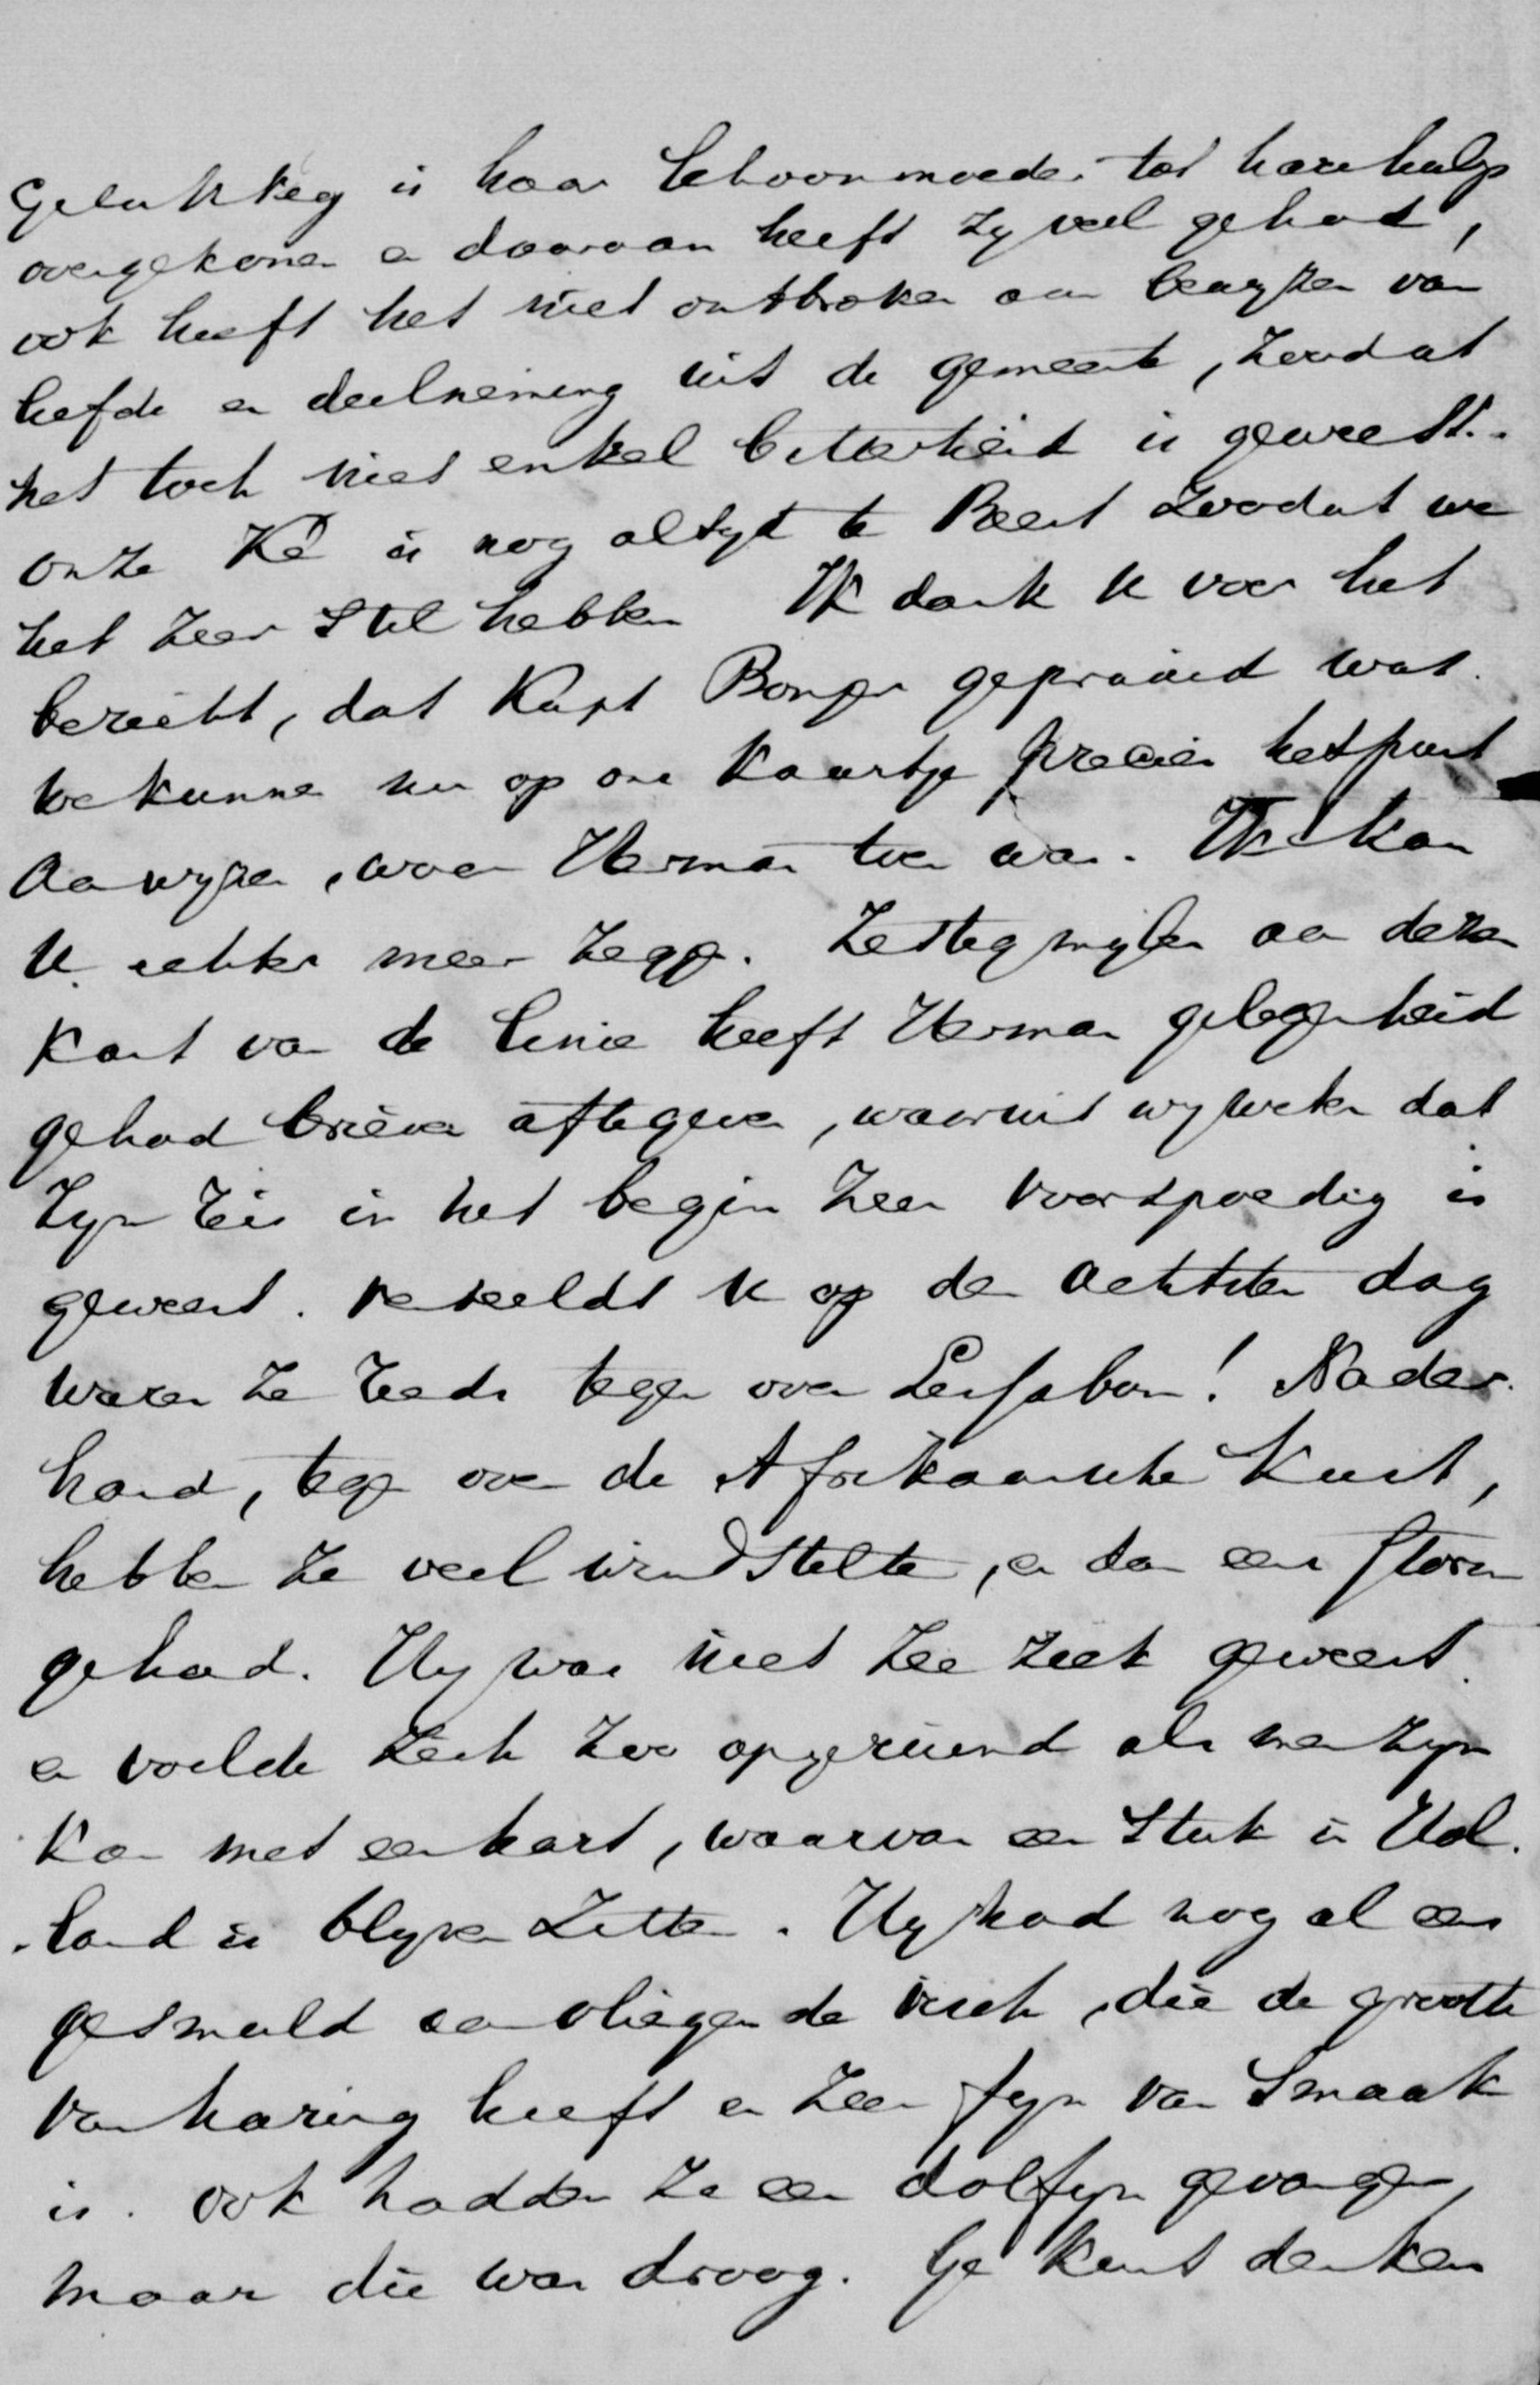 Gelukkig is haar schoonmoeder tot hare hulp
overgekomen en daaraan heeft zij veel gehad,
ook heeft het niet ontbroken aan bewijzen van
liefde en deelneming uit de gemeente, zoodat
het toch niet enkel bitterheid is geweest.
onze Ké is nog altijd te Beest zoodat we
het zeer stil hebben Ik dank u voor het
bericht, dat Kapt Bonger gepraaid was.
We kunnen nu op ons kaartje precies het punt
aanwijzen, waar Herman toen was. Ik kan
U echter meer zeggen. Zestig mijlen aan dezen
kant van de linie heeft Herman gelegenheid
gehad brieven aftegeven, waaruit wij weten dat
zijn reis in het begin zeer voorspoedig is
geweest. verbeeldt u op den achtsten dag
waren ze reeds tegen over Lissabon! Nader
hand, tegen over de Afrikaansche kust,
hebben ze veel windstilte, en dan een storm
gehad. Hij was niet zee ziek geweest
en voelde zich zoo opgeruimd als men zijn
kan met een hart, waarvan een stuk in Hol
land is blijven zitten. Hij had nog al eens
gesmuld aan vliegende visch, die de grootte
van haring heeft en zeer fijn van smaak
is. ook hadden ze een dolfijn gevangen,
maar die was droog. Ge kunt denken